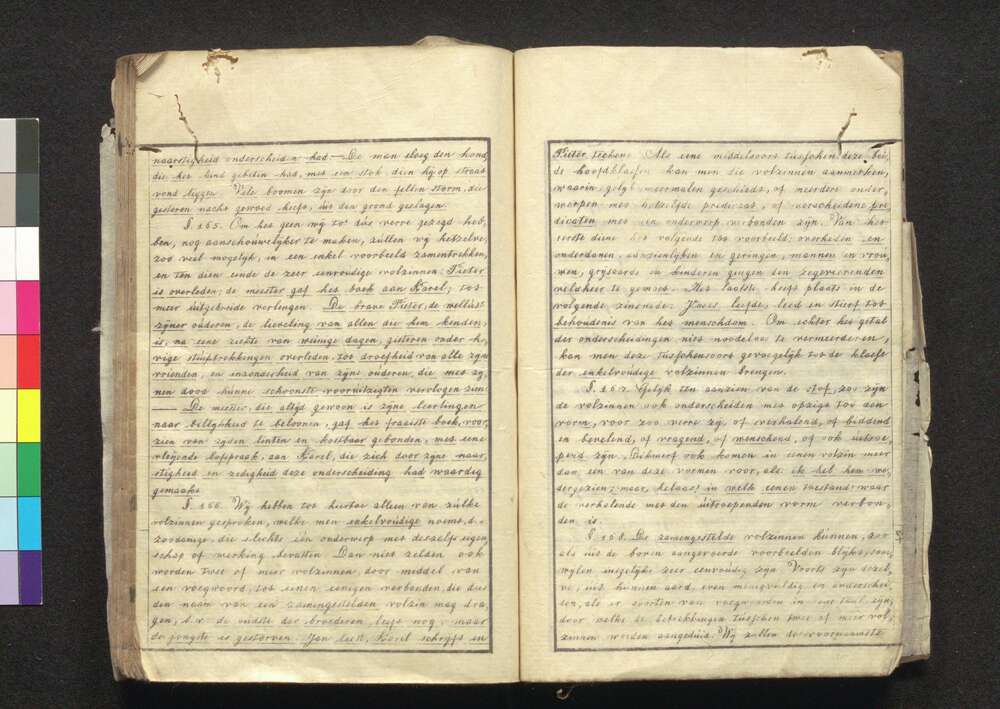 naarstigheid onderscheiden had. — De man sloeg den hond,
die het kind gebeten had, met een stok dien hij op straat
vond liggen. Vele boomen zijn door den fellen storm, die
gisteren nacht gewoed heeft, uit den grond geslagen.
§. 165. Om het geen wij tot dús verre gezegd heb,
ben, nog aanschouwelijker te maken, zúllen wij hetzelve,
zoo veel mogelijk, in een enkel voorbeeld zamentrekken,
en ten dien einde de zeer eenvoudige volzinnen: Pieter
is overleden; de meester gaf het boek aan Karel; tot
meer úitgebreide verlengen. De brave Pieter, de wellúst
zijner oúderen, de lieveling van allen die hem kenden,
is, na eene ziekte van weinige dagen, gisteren onder he,
vige stúiptrekkingen overleden, tot droefheid van alle zijne
vrienden, en inzonderheid van zijne oúderen, die met zij,
nen dood húnne schoonste vooruitzigten vervlogen zien.
— De meester, die altijd gewoon is zijne leerlingen
naar billijkheid te beloonen, gaf het fraaiste boek, voor,
zien van zijden linten en kostbaar gebonden, met eene
vleijende toespraak, aan Karel, die zich door zijne naar,
stigheid en zedigheid deze onderscheiding had waardig
gemaakt.
§. 166. Wij hebben tot hiertoe alleen van zúlke
volzinnen gesproken, welke men enkelvoúdige noemt, d. i.
zoodanige, die slechts één onderwerp met deszelfs eigen,
schap of werking bevatten. Dan niet zelden ook
worden twee of meer volzinnen, door middel van
een voegwoord, tot eenen eenigen verbonden, die dus
den naam van een zamengestelden volzin mag dra,
gen, b. v. de oúdste der broederen leeft nog, maar
de jongste is gestorven. Jan leest, Karel schrijft en
Pieter rekent. Als eene middelsoort tússchen deze bei,
de hoofdklassen kan men die volzinnen aanmerken,
waarin, gelijk meermalen geschiedt, of meerdere onder,
werpen met hetzelfde predicaat, of verscheidene pre
dicaten met een onderwerp verbonden zijn. Van het
eerste diene het volgende tot voorbeeld: overheden en
onderdanen, aanzienlijken en geringen, mannen en vroú,
wen, grijsaards en kinderen gingen den zegevierenden
veldheer te gemoet. Het laatste heeft plaats in de
volgende zinsnede: Jezus leefde, leed en stierf tot
behoúdenis van het menschdom. Om echter het getal
der onderscheidingen niet noodeloos te vermeerderen,
kan men deze tússchensoort gevoegelijk tot de klasse
der enkelvoúdige volzinnen brengen.
§. 167. Gelijk ten aanzien van de stof, zoo zijn
de volzinnen ook onderscheiden met opzigt tot den
vorm, voor zoo verre zij, of verhalend, of biddend
en bevelend, of vragend, of wenschend, of ook uitroe,
pend zijn. Dikwerf ook komen in eenen volzin meer
dan één van deze vormen voor, als: ik heb hem we,
dergezien; maar, helaas! in welk eenen toestand! waar
de verhalende met den uitroependen vorm verbon,
den is.
§. 168. De zamengestelde volzinnen kúnnen, zoo
als uit de boven aangevoerde voorbeelden blijkt, som,
wijlen insgelijks zeer eenvoúdig zijn. Voorts zijn dezel,
ve, uit húnnen aard, even menigvúldig en onderschei,
den, als er soorten van voegwoorden in eene taal zijn,
door welke de betrekkingen tússchen twee of meer vol,
zinnen worden aangeduid. Wij zullen de voornaamste